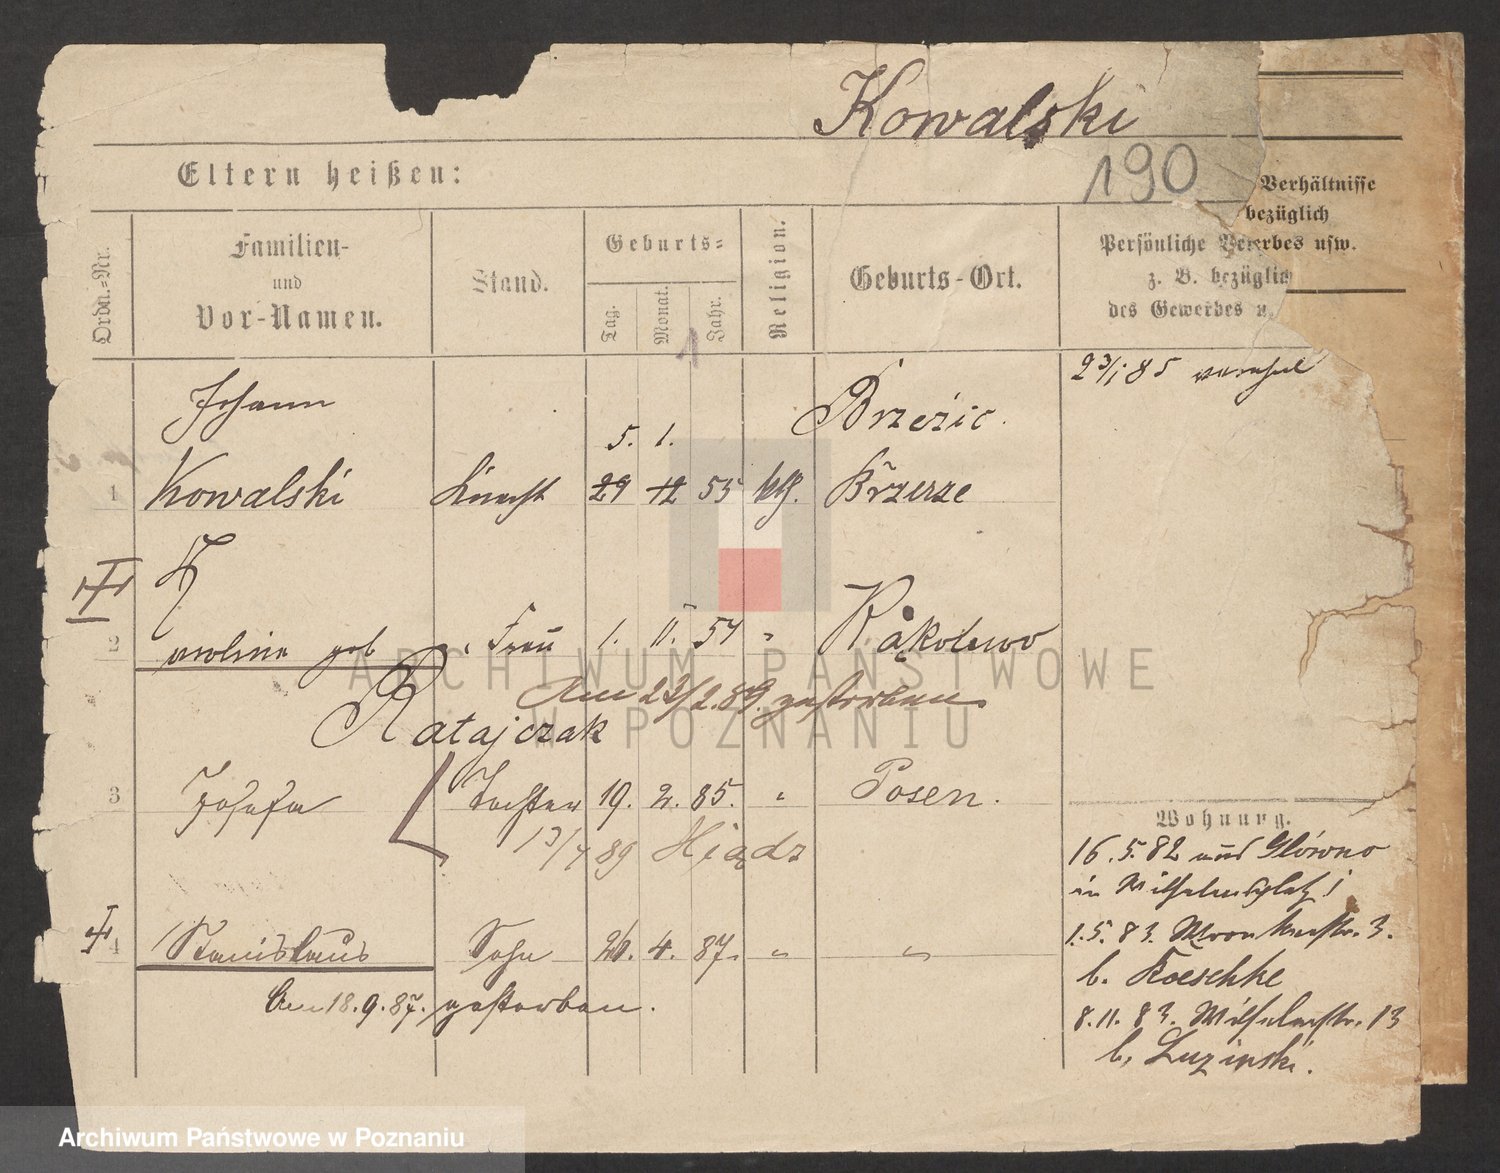 Kowalski
190
Eltern heißen:
Verhältnisse
bezüglich
Ordn.-Nr.
Familien-
und
Vor-Namen.
Stand.
Geburts-
Tag.
Monat.
Jahr.
Religion.
Geburts-Ort.
Persönliche
erbes usw.
z. B. bezüglich
des Gewerbes u.
1
23/1 85
Johann
5. 1.
Brzezic.
1 Kowalski Knecht 29 12 55 kth. Brzerze
2 geb. Frau 1. 11. 54 " Rąkolewo
Ratajczak
Am 23/2. 89. gestorben
3 Josefa Tochter 19. 2. 85. " Posen.
13/7 89 Hiądz
4 Stanislaus Sohn 26. 4. 87. " "
Am 18. 9. 87. gestorben.
Wohnung.
16. 5. 82 aus Glówno
in Wilhelmsplatz 1
1. 5. 83. Wronkerstr. 3.
b. Koeschke
8. 11. 83. Wilhelmstr. 13
b. Luzinski.
ARCHIWUM PAŃSTWOWE
W POZNANIU
Archiwum Państwowe w Poznaniu